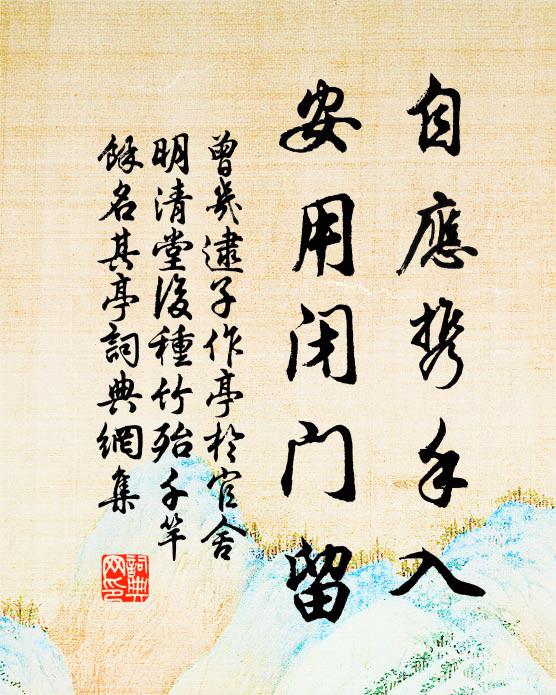 自應携手入
安用闭门留
曾幾逮子作亭於官舍
明清堂後種竹殆千竿
餘名其亭詞典網集
詞典
网印